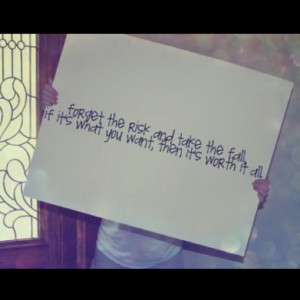 forget the risk and take the fall,
if it's what you want, then it's worth it all.